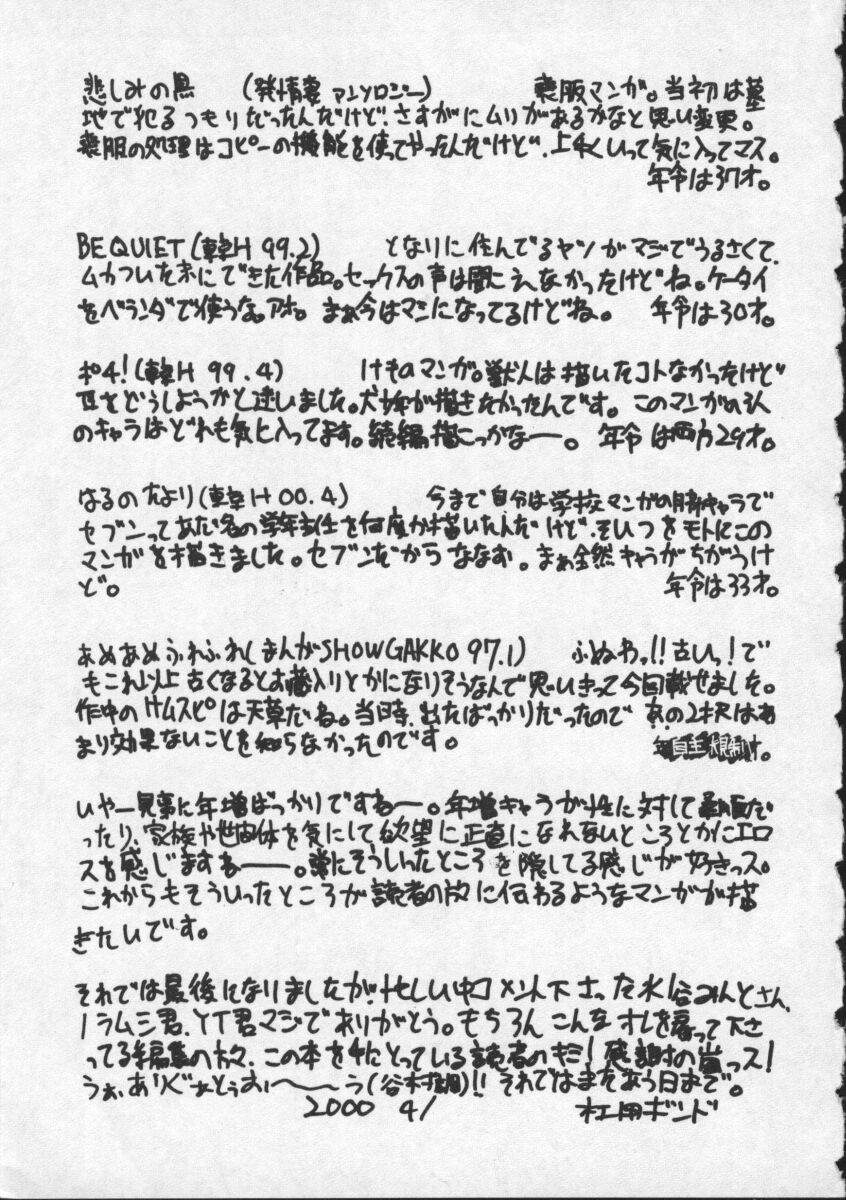 悲しみの黒 (発情妻 アンソロジー) 喪服マンガ。当初は墓
地で犯るつもりだったんだけど、さすがにムリがあるかなと思い変更。
喪服の処理はコピーの機能を使ってやったんだけど、上手くいって気に入ってマス。
年令は37才。
BE QUIET (華H 99.2) となりに住んでるヤツがマジでうるさくて、
ムカついた末にできた作品。セックスの声は聞こえなかったけどね。ケータイ
をベランダで使うな。アホ。まぁ今はマンになってるけどね。 年令は30才。
ポチ! (華H 99.4) けものマンガ。獣人は描いたコトなかったけど
耳をどうしようかと迷いました。犬が描きたかったんです。このマンガの3人
のキャラはどれも気に入ってます。続編描こっかなー。 年令は両方29才。
はるのたより (華H 00.4) 今まで自分は学校マンガの脇キャラで
セブンってあだ名の学年主任を何度か描いたんだけど、そいつをモトにこの
マンガを描きました。セブンだからななお。まぁ全然キャラがちがうけ
ど。 年令は33才。
あめあめふれふれ (まんがSHOWGAKKO 97.1) ふぬわっ!!古いっ!で
もこれ以上古くなるとお蔵入りとかになりそうなんで思いきって今回載せました。
作中のサムスピは天草だね。当時、出たばっかりだったので あの2択はあ
まり効果ないことを知らなかったのです。 年自主規制才。
いやー見事に年増ばっかりですねー。年増キャラが性に対してだ
ったり、家族や世間体を気にして欲望に正直になれないところとかにエロ
スを感じますねー。常にそういったところを隠してる感じが好きっス。
これからもそういったところが読者の方に伝わるようなマンガが描
きたいです。
それでは最後になりましたが、忙しい中コメント下さった水谷みんとさん、
ラムニ君、YT君マジでありがとう。もちろん こんなオレを雇って下さ
ってる編集の方々、この本を手にとっている読者のキミ!感謝の嵐っス!
うぉ、あ〃りぐぁとぅおぃ〜う(谷村調)!!それではまたあう日まで。
2000 4/ 杜用ボンド